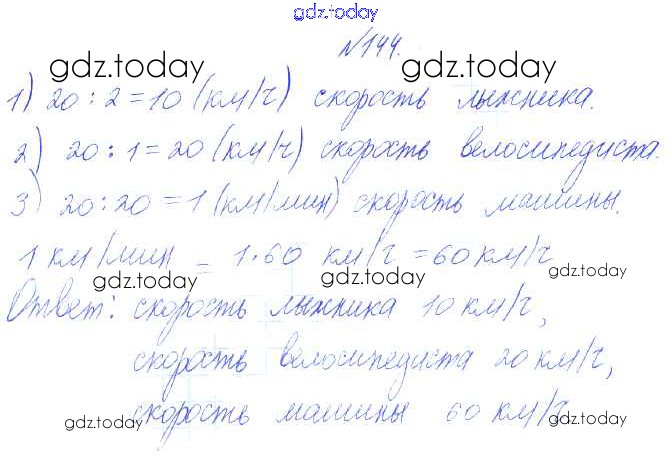 gdz.today
№144.
gdz.today gdz.today
1) 20 : 2 = 10 (км/ч) скорость лыжника.
2) 20 : 1 = 20 (км/ч) скорость велосипедиста.
gdz.today gdz.today
3) 20 : 20 = 1 (км/мин) скорость машины.
1 км/мин = 1 · 60 км/ч = 60 км/ч
gdz.today gdz.today gdz.today
Ответ: скорость лыжника 10 км/ч,
скорость велосипедиста 20 км/ч,
скорость машины 60 км/ч.
gdz.today gdz.today gdz.today